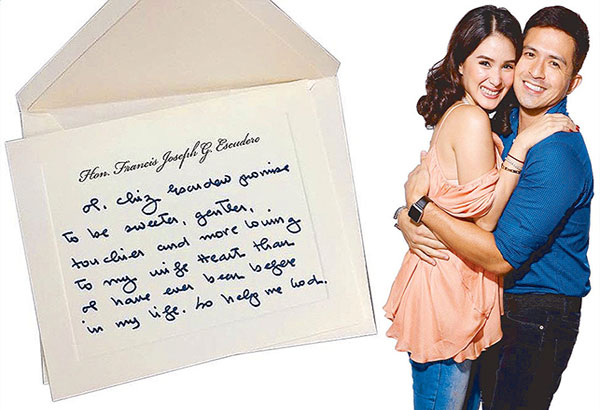 Hon. Francis Joseph G. Escudero
I, Chiz Escudero promise
to be sweeter, gentler,
touchier and more loving
to my wife Heart than
I have ever been before
in my life. So help me God.